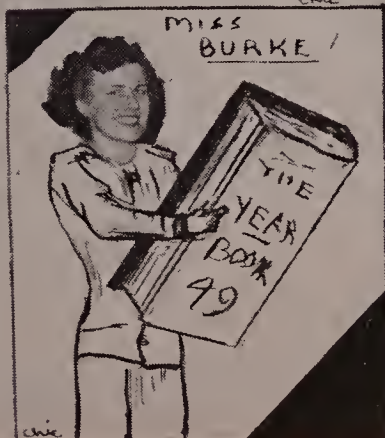 chic
MISS
BURKE!
THE
YEAR
BOOK
49
chic